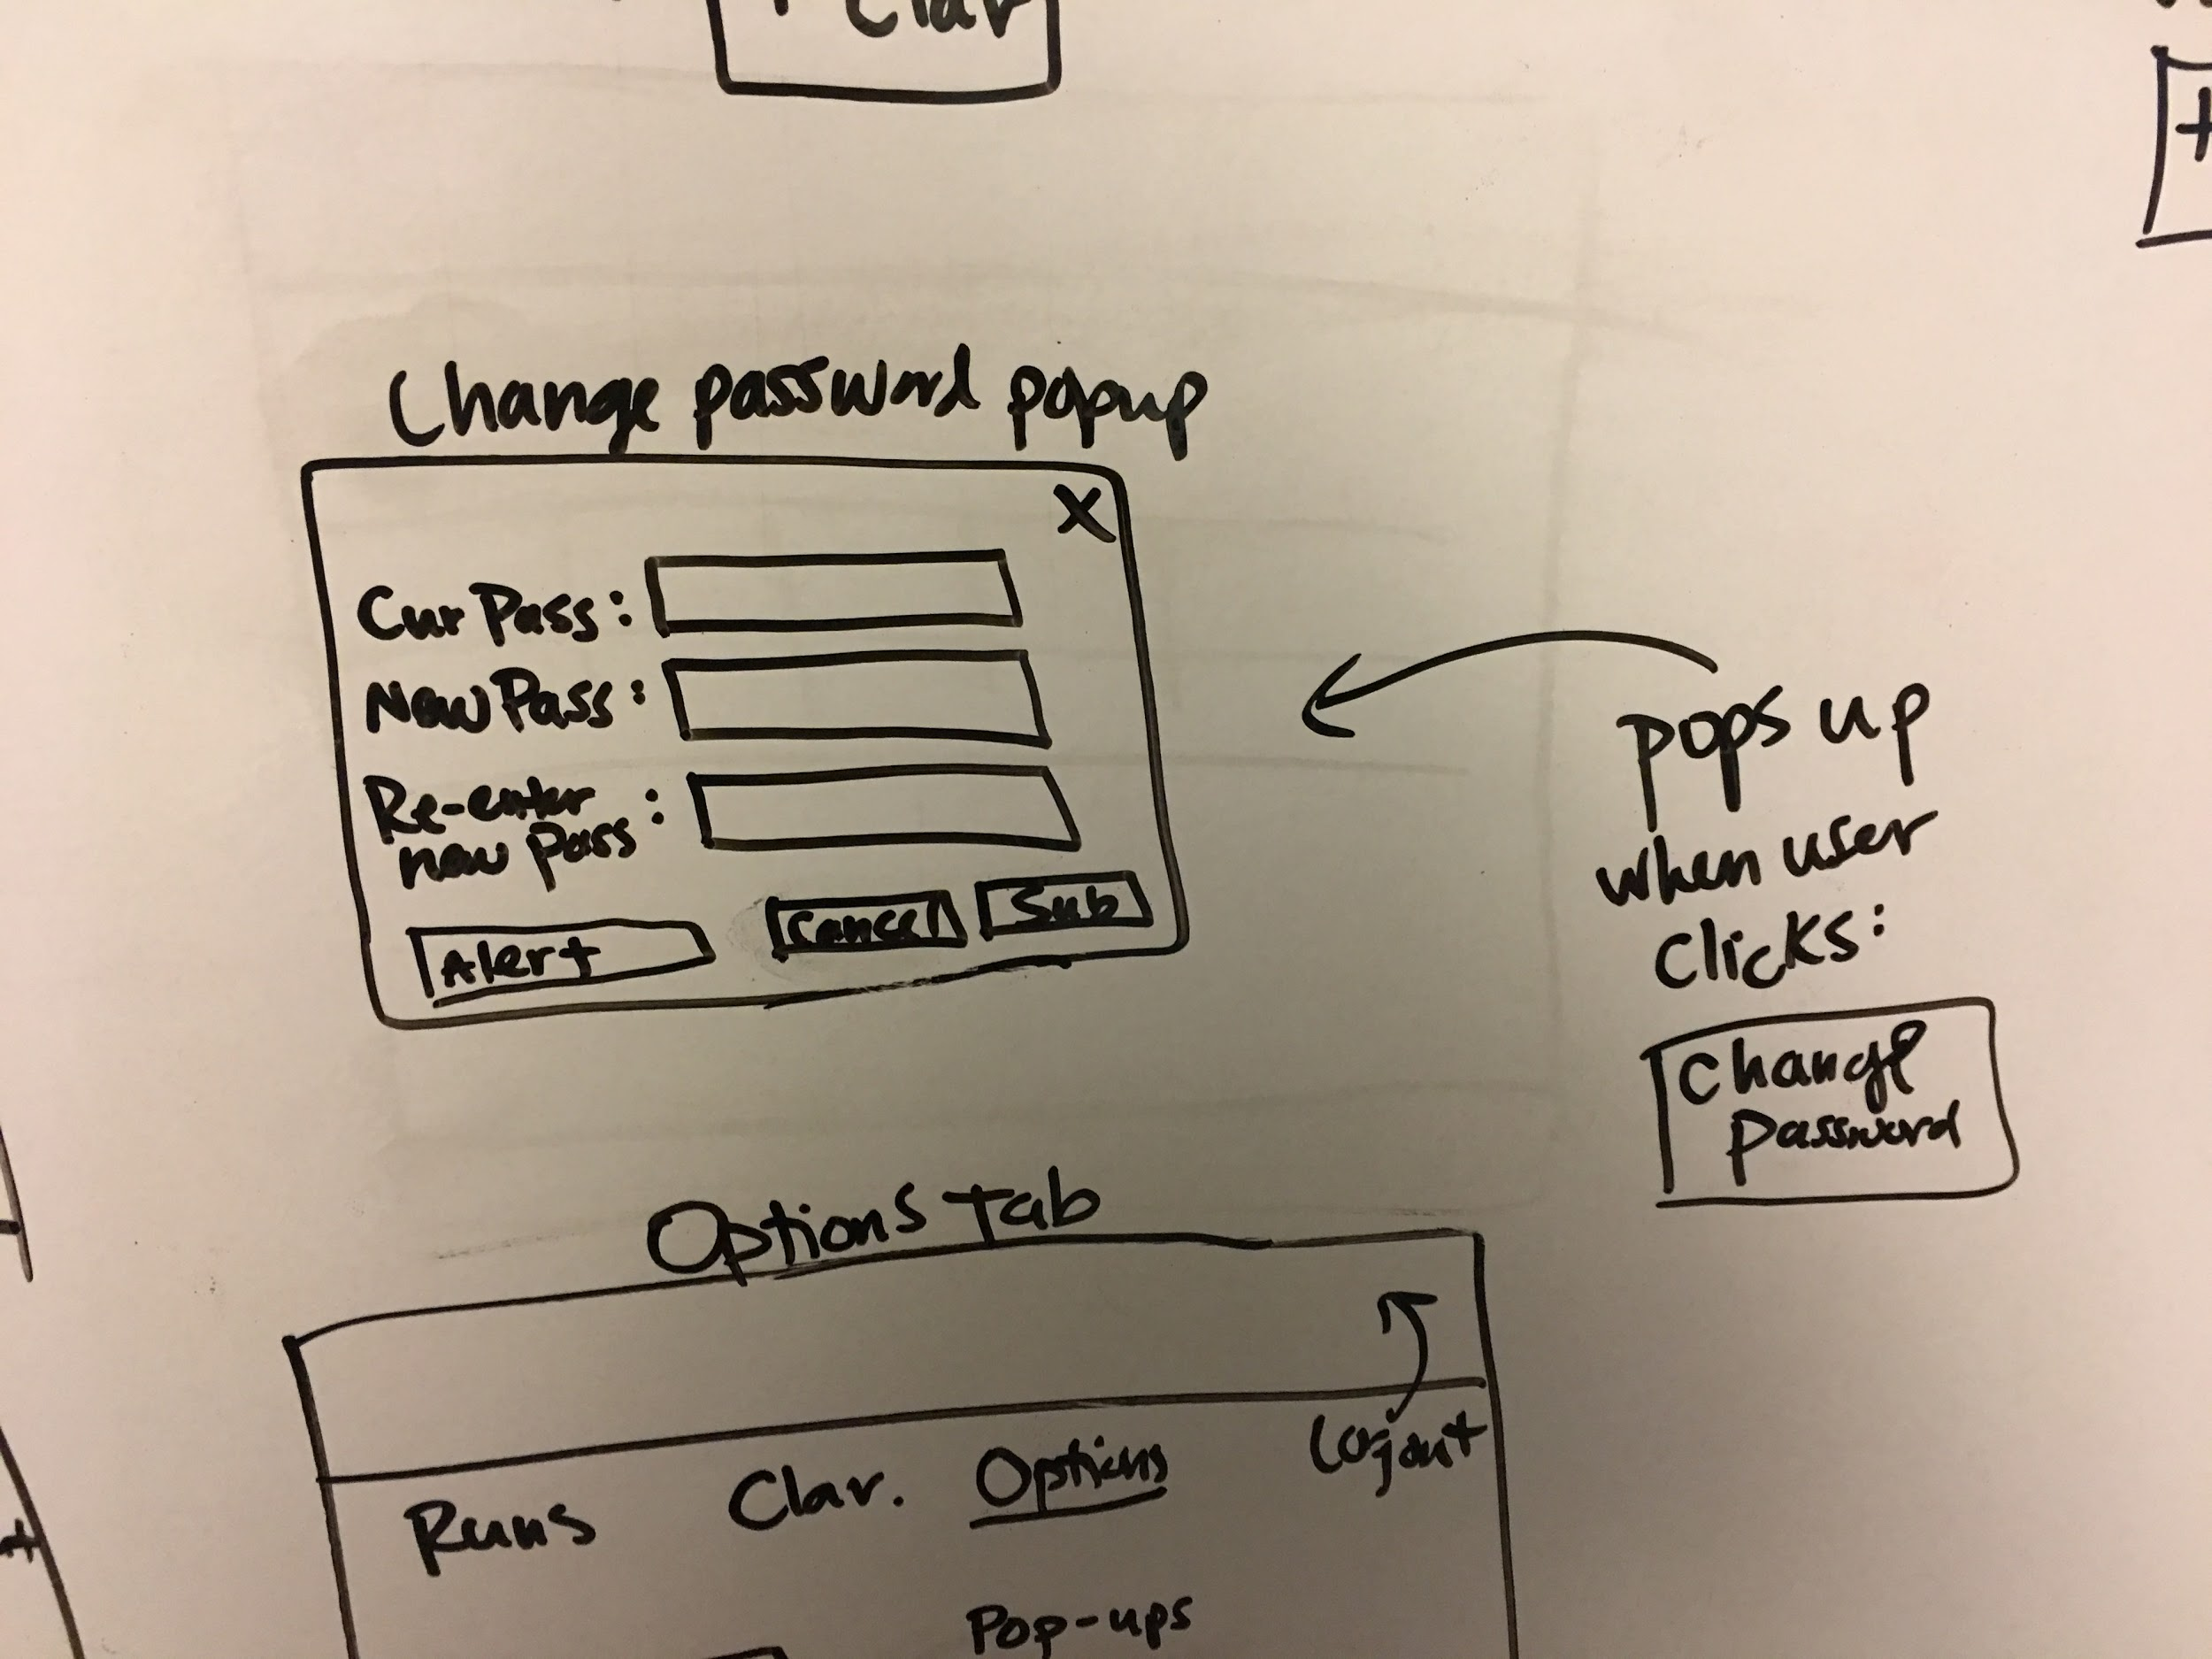 + Clar
+
Change password popup
X
Cur Pass:
New Pass:
Re-enter
new pass :
Alert
Cancel
Sub
pops up
when user
clicks:
Change
password
Options tab
Runs
Clar.
Options
Logout
Pop-ups